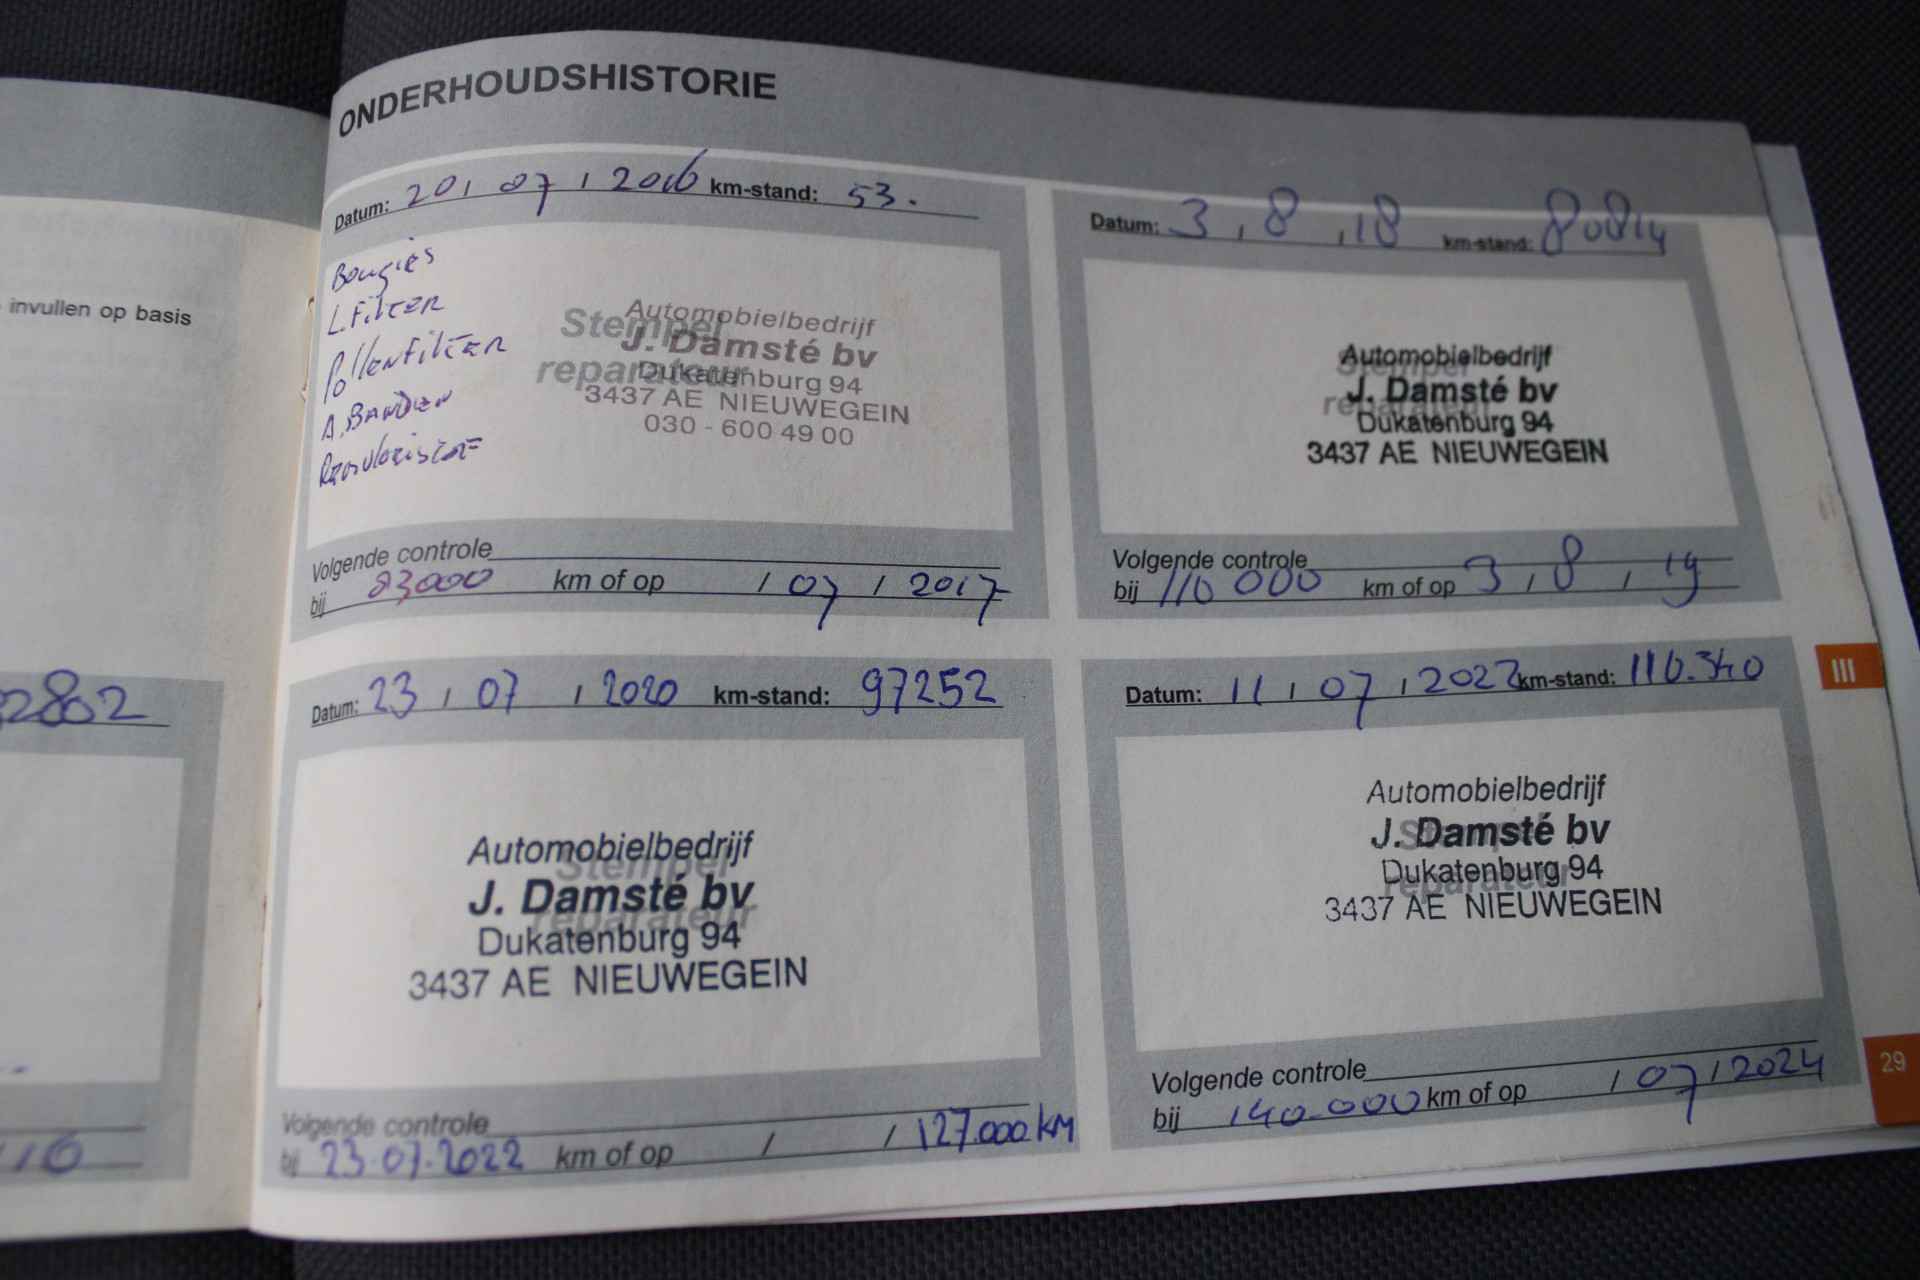 invullen op basis
2802
16
ONDERHOUDSHISTORIE
Datum: 20 / 07 / 2016 km-stand: 53.
Bougies
L.Filter
Pollenfilter
A.Banden
Stempel
reparateur
Automobielbedrijf
J. Damsté bv
Dukatenburg 94
3437 AE NIEUWEGEIN
030 - 600 49 00
Volgende controle
bij 83000 km of op / 07 / 2017
Datum: 3 / 8 / 18 km-stand: 80814
Stempel
reparateur
Automobielbedrijf
J. Damsté bv
Dukatenburg 94
3437 AE NIEUWEGEIN
Volgende controle
bij 110 000 km of op 3 / 8 / 19
Datum: 23 / 07 / 2020 km-stand: 97252
Stempel
reparateur
Automobielbedrijf
J. Damsté bv
Dukatenburg 94
3437 AE NIEUWEGEIN
Volgende controle
bij 23.07.2022 km of op / / 127.000 km
Datum: 11 / 07 / 2022 km-stand: 110.340
Stempel
reparateur
Automobielbedrijf
J. Damsté bv
Dukatenburg 94
3437 AE NIEUWEGEIN
Volgende controle
bij 140.000 km of op / 07 / 2024
III
29